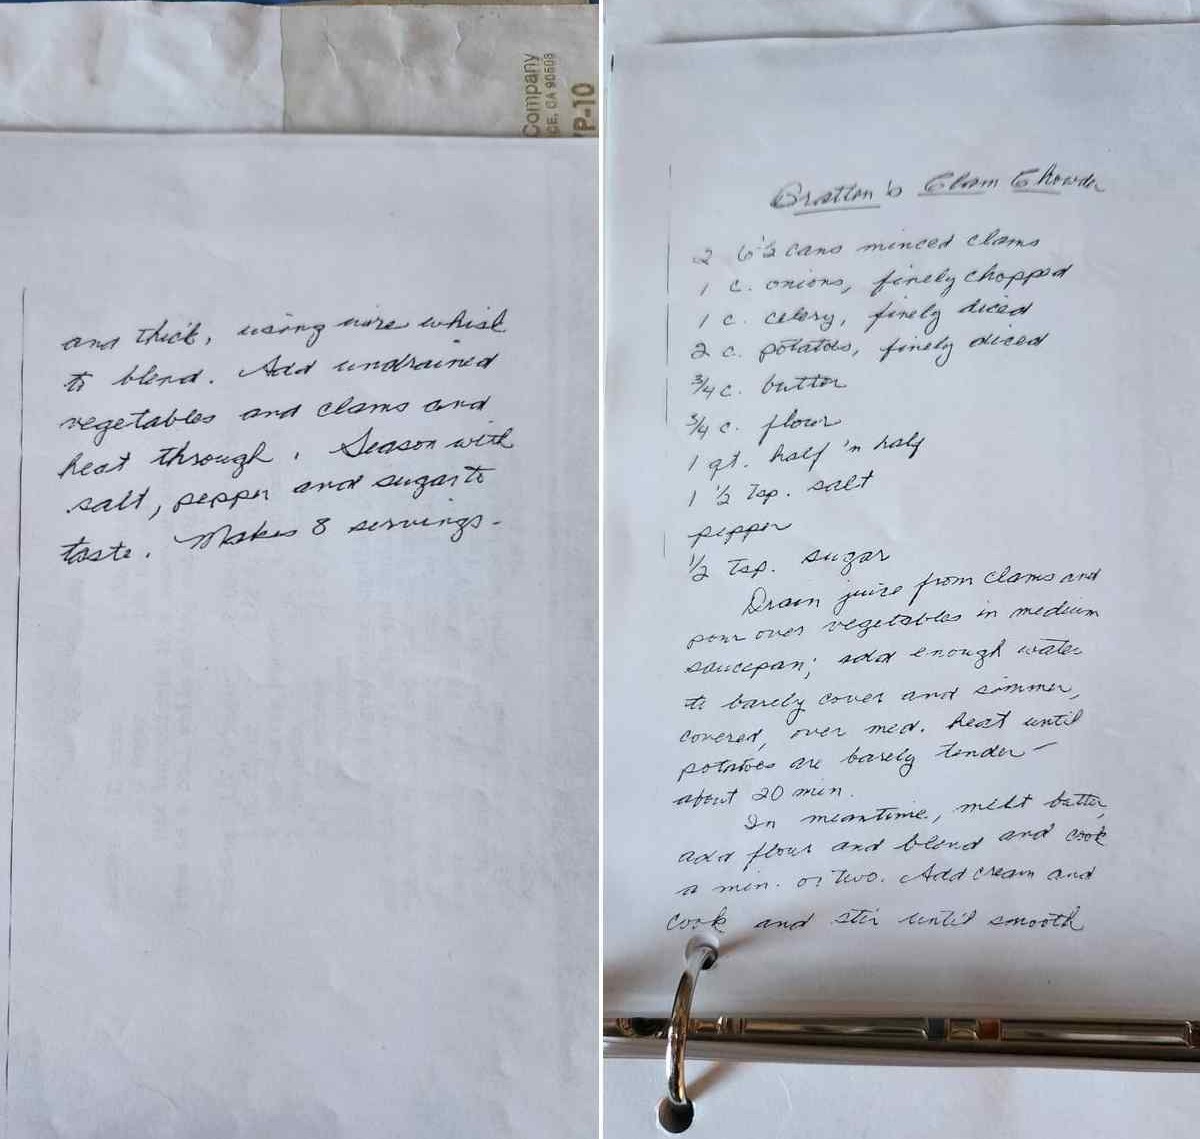 Company
CE, CA 90503
YP-10
and thick, using wire whisk
to blend. Add undrained
vegetables and clams and
heat through. Season with
salt, pepper and sugar to
taste. Makes 8 servings.
Gratton's Clam Chowder
2 6 1/2 cans minced clams
1 c. onions, finely chopped
1 c. celery, finely diced
2 c. potatoes, finely diced
3/4 c. butter
3/4 c. flour
1 qt. half 'n half
1 1/2 Tsp. salt
pepper
1/2 Tsp. sugar
Drain juice from clams and
pour over vegetables in medium
saucepan; add enough water
to barely cover and simmer,
covered, over med. heat until
potatoes are barely tender –
about 20 min.
In meantime, melt butter,
add flour and blend and cook
a min. or two. Add cream and
cook and stir until smooth